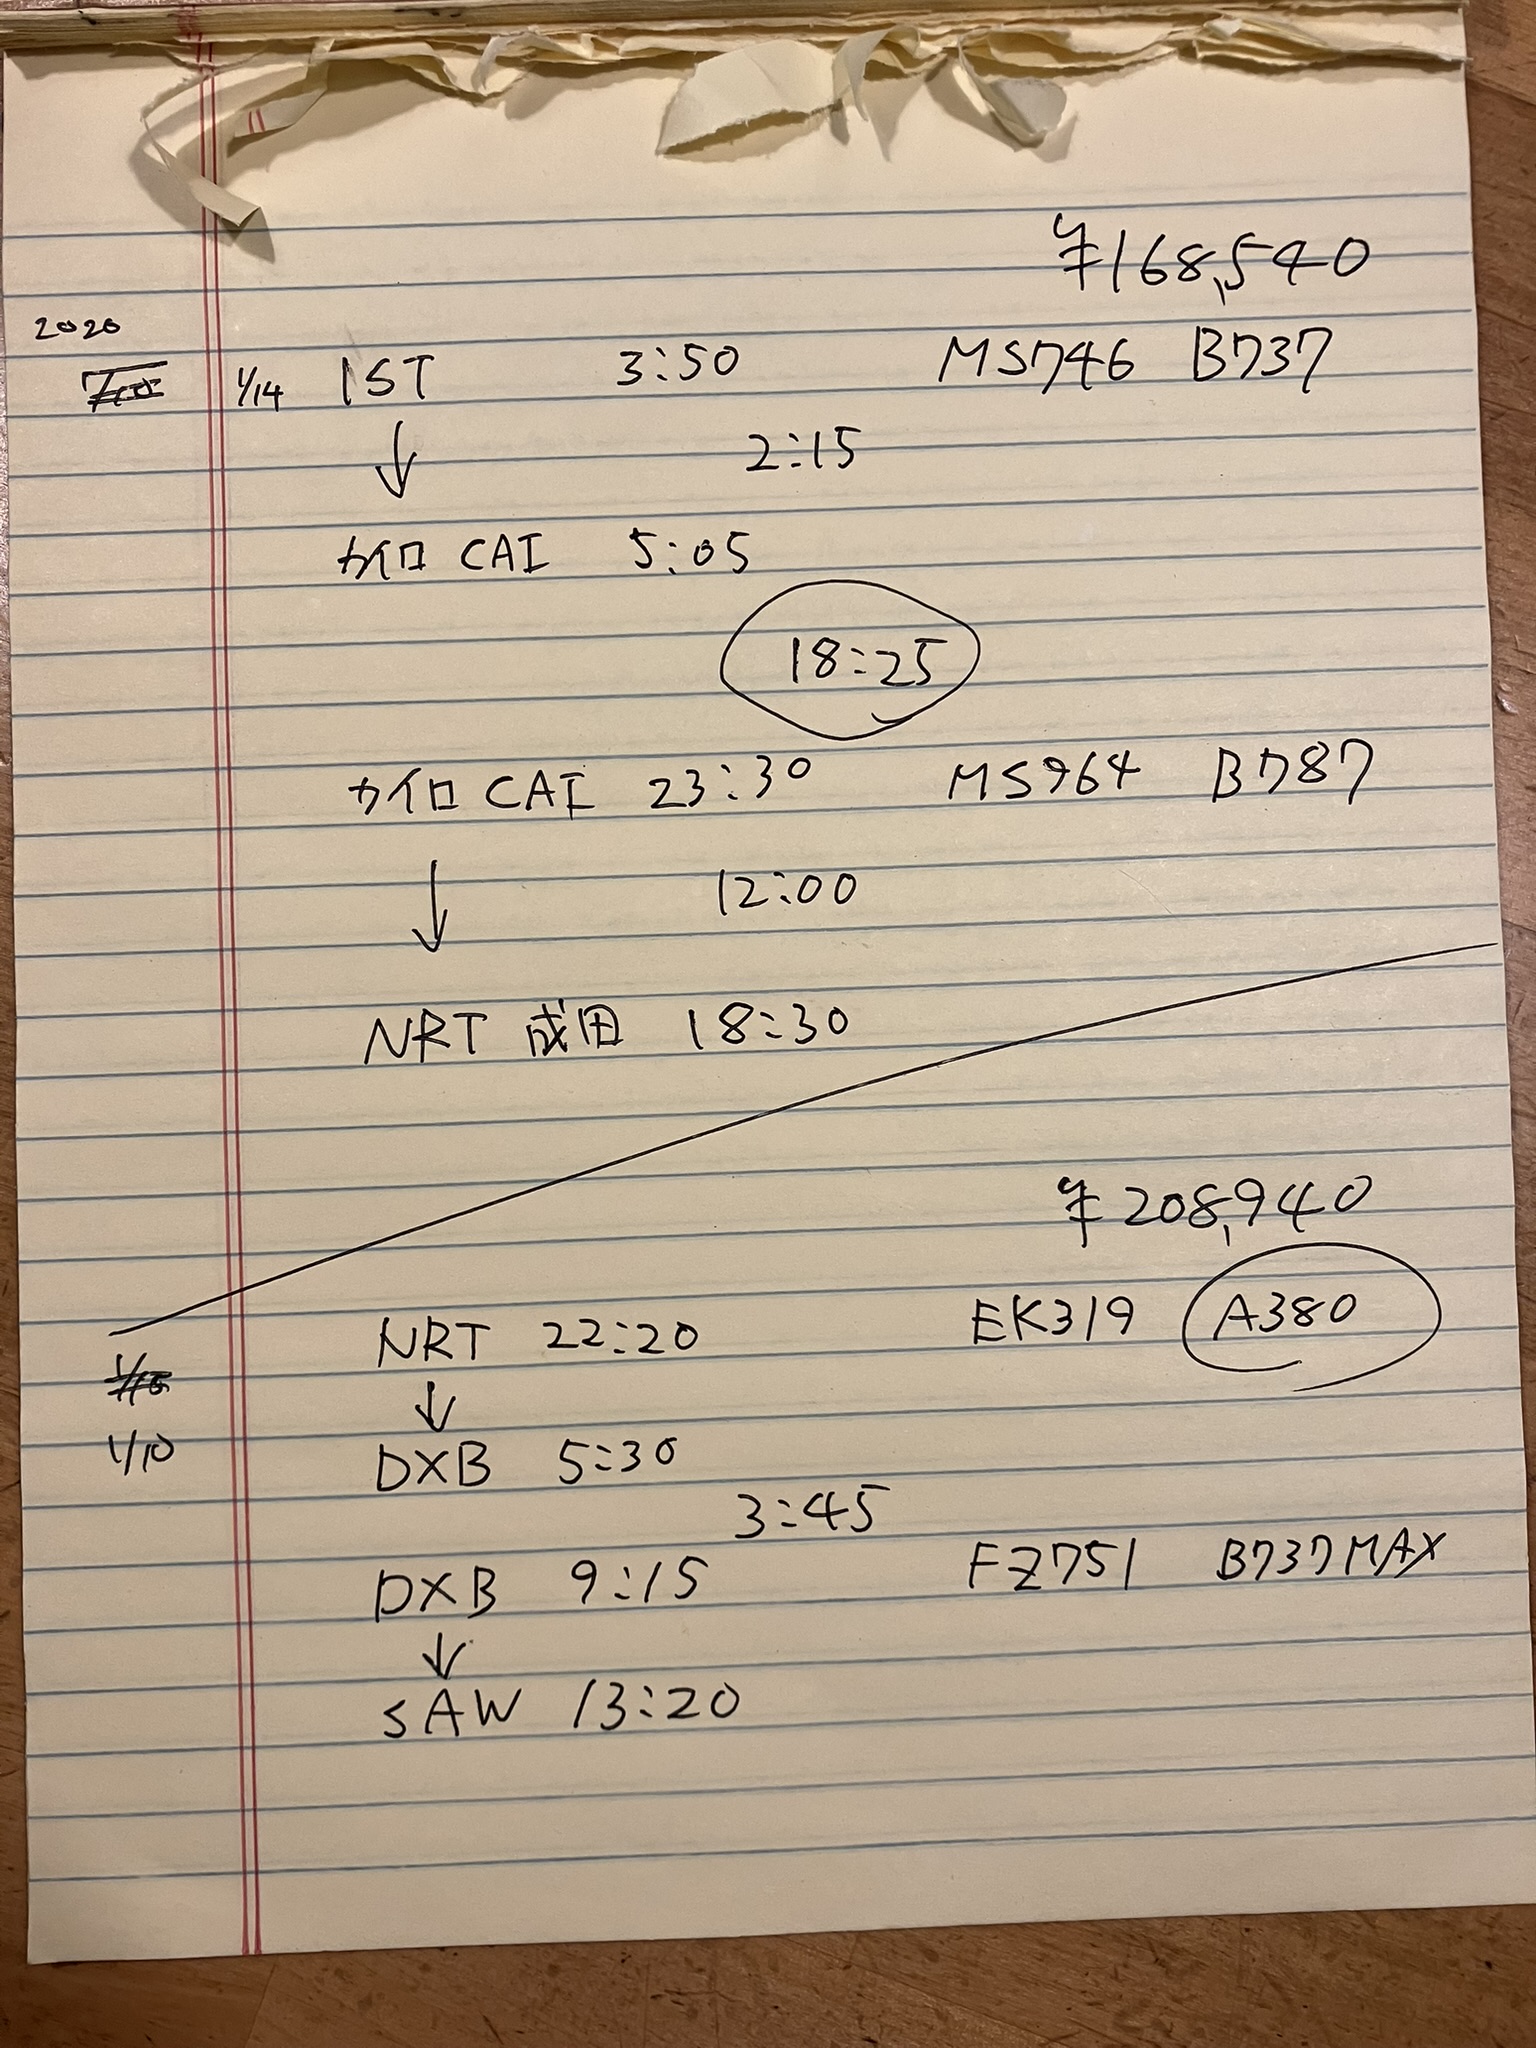 ¥168,540
2020
1/14 IST 3:50 MS746 B737
↓ 2:15
カイロ CAI 5:05
18:25
カイロ CAI 23:30 MS964 B787
↓ 12:00
NRT 成田 18:30
¥208,940
NRT 22:20 EK319 A380
↓
1/10 DXB 5:30
3:45
DXB 9:15 FZ751 B737MAX
↓
SAW 13:20